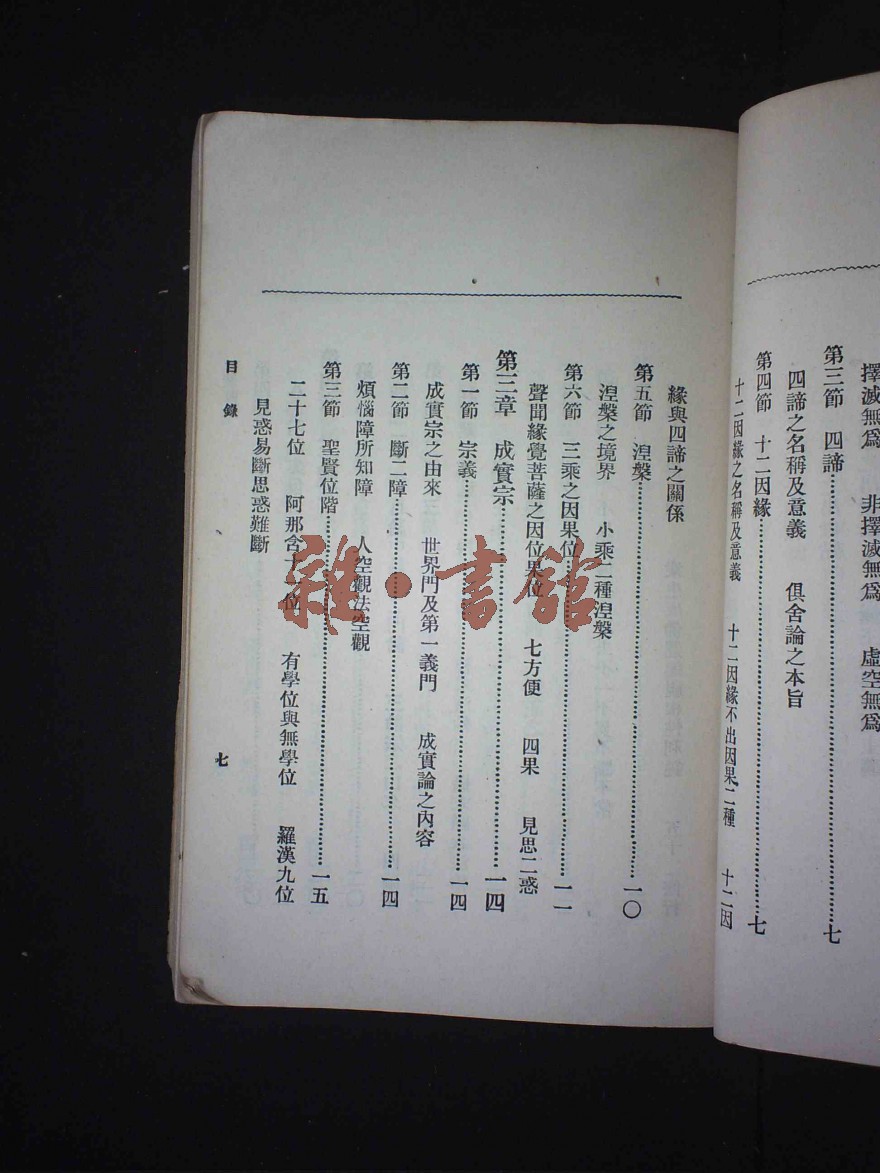 擇滅無爲　非擇滅無爲　虛空無爲
第三節　四諦……七
四諦之名稱及意義　俱舍論之本旨
第四節　十二因緣……七
十二因緣之名稱及意義　十二因緣不出因果二種　十二因
緣與四諦之關係
第五節　涅槃……一〇
涅槃之境界　小乘二種涅槃
第六節　三乘之因果位……一一
聲聞緣覺菩薩之因位果位　七方便　四果　見思二惑
第三章　成實宗……一四
第一節　宗義……一四
成實宗之由來　世界門及第一義門　成實論之內容
第二節　斷二障……一四
煩惱障所知障　人空觀法空觀
第三節　聖賢位階……一五
二十七位　阿那含十一位　有學位與無學位　羅漢九位
見惑易斷思惑難斷
目錄
七
雜·書館